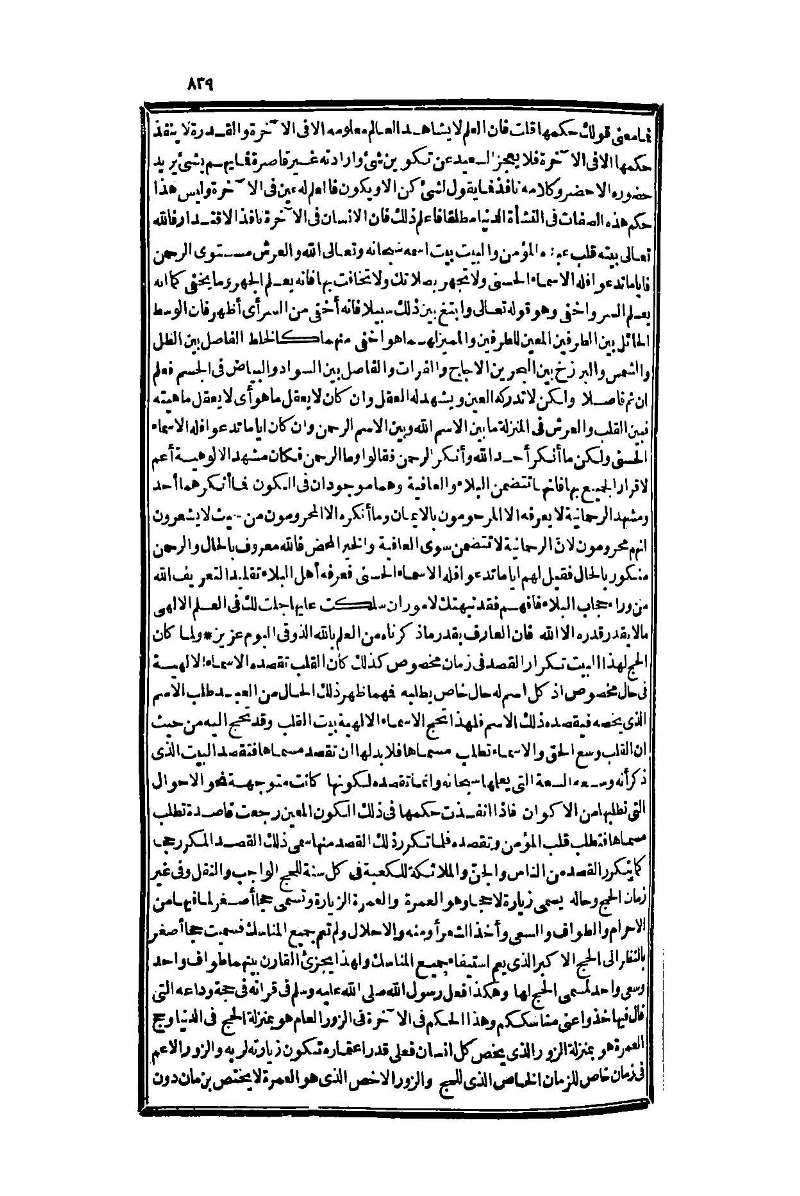 ٨٢٩
فامعنى قولك حكمها قلت فان العلم لا يشاهد العالم معلومه الا فى الآخرة والقدرة لا ينفذ
حكمها الا فى الآخرة فلا يعجز السعيد عن تكوين شئ وارادته غير قاصرة فايهم بشئ يريد
حضوره الا حضر وكلامه نافذ فايقول لشئ كن الا ويكون فاعلم له عين فى الآخرة وليس هذا
حكم هذه الصفات فى النشأة الدنيا مطلقا فاعلم ذلك فان الانسان فى الآخرة نافذ الاقتدار فالله
تعالى بيته قلب عبده المؤمن والبيت بيت اسمه سبحانه وتعالى الله والعرش مستوى الرحمن
فاياما تدعوا فله الاسماء الحسنى ولا تجهر بصلاتك ولا تخافت بها فانه يعلم الجهر وما يخفى كما انه
يعلم السر واخفى وهو قوله تعالى وابتغ بين ذلك سبيلا فانه أخفى من السر أى أظهر فان الوسط
الحائل بين الطرفين المعين للطرفين والمميز لهما هو اخفى منهما كالخط الفاصل بين الظل
والشمس والبرزخ بين البحرين الاجاج والفرات والفاصل بين السواد والبياض فى الجسم فعلم
ان ثم فاصلا ولكن لا تدركه العين ويشهد له العقل وان كان لا يعقل ما هو أى لا يعقل ماهيته
فبين القلب والعرش فى المنزلة ما بين الاسم الله وبين الاسم الرحمن وان كان اياما تدعوا فله الاسماء
الحسنى ولكن ما أنكر أحد الله وأنكر الرحمن فقالوا وما الرحمن فكان مشهد الالوهية أعم
لاقرار الجميع بها فانها تتضمن البلاء والعافية وهما موجودان فى الكون فما أنكرهما أحد
ومشهد الرحمانية لا يعرفه الا المرحومون بالايمان وما أنكره الا المحرومون من حيث لا يشعرون
انهم محرومون لان الرحمانية لا تتضمن سوى العافية والخير المحض فالله معروف بالحال والرحمن
منكور بالحال فقيل لهم اياما تدعوا فله الاسماء الحسنى فعرفه أهل البلاء تقليدا لتعريف الله
من وراء حجاب البلاء فافهم فقد نبهتك لامور ان سلكت عليها جلت لك فى العلم الالهى
مالا يقدر قدره الا الله فان العارف بقدر ما ذكرناه من العلم بالله الذوقى اليوم عزيز * ولما كان
الحج لهذا البيت تكرار القصد فى زمان مخصوص كذلك كان القلب تقصده الاسماء الالهية
فى حال مخصوص اذ كل اسم له حال خاص يطلبه فهما ظهر ذلك الحال من العبد طلب الاسم
الذى يخصه فيقصده ذلك الاسم فلهذا تحج الاسماء الالهية بيت القلب وقد تحج اليه من حيث
ان القلب وسع الحق والاسماء تطلب مسماها فلا بد لها ان تقصد مسماها فتقصد البيت الذى
ذكر أنه وسعه السعة التى يعلمها سبحانه وانما تقصده لكونها كانت متوجهة نحو الاحوال
التى تطلبها من الاكوان فاذا انفذت حكمها فى ذلك الكون المعين رجعت قاصدة تطلب
مسماها فتطلب قلب المؤمن وتقصده فلما تكرر ذلك القصد منها سمى ذلك القصد المكرر حجا
كما يتكرر القصد من الناس والجن والملائكة للكعبة فى كل سنة للحج الواجب والنفل وفى غير
زمان الحج وحاله يسمى زيارة لا حجا وهو العمرة والعمرة الزيارة وتسمى حجا أصغر لما فيها من
الاحرام والطواف والسعى وأخذ الشعر أو منه والاحلال ولم تعم جميع المناسك فسميت حجا أصغر
بالنظر الى الحج الاكبر الذى يعم استيفاء جميع المناسك ولهذا يجزئ القارن بينهما طواف واحد
وسعى واحد لمسمى الحج لها وهكذا فعل رسول الله صلى الله عليه وسلم فى قرانه فى حجة وداعه التى
قال فيها خذوا عنى مناسككم وهذا الحكم فى الآخرة فى الزور العام هو بمنزلة الحج فى الدنيا وحج
العمرة هو بمنزلة الزور الذى يخص كل انسان فعلى قدر اعتماره تكون زيارته لربه والزور الاعم
فى زمان خاص للزمان الخاص الذى للحج والزور الاخص الذى هو العمرة لا يختص بزمان دون